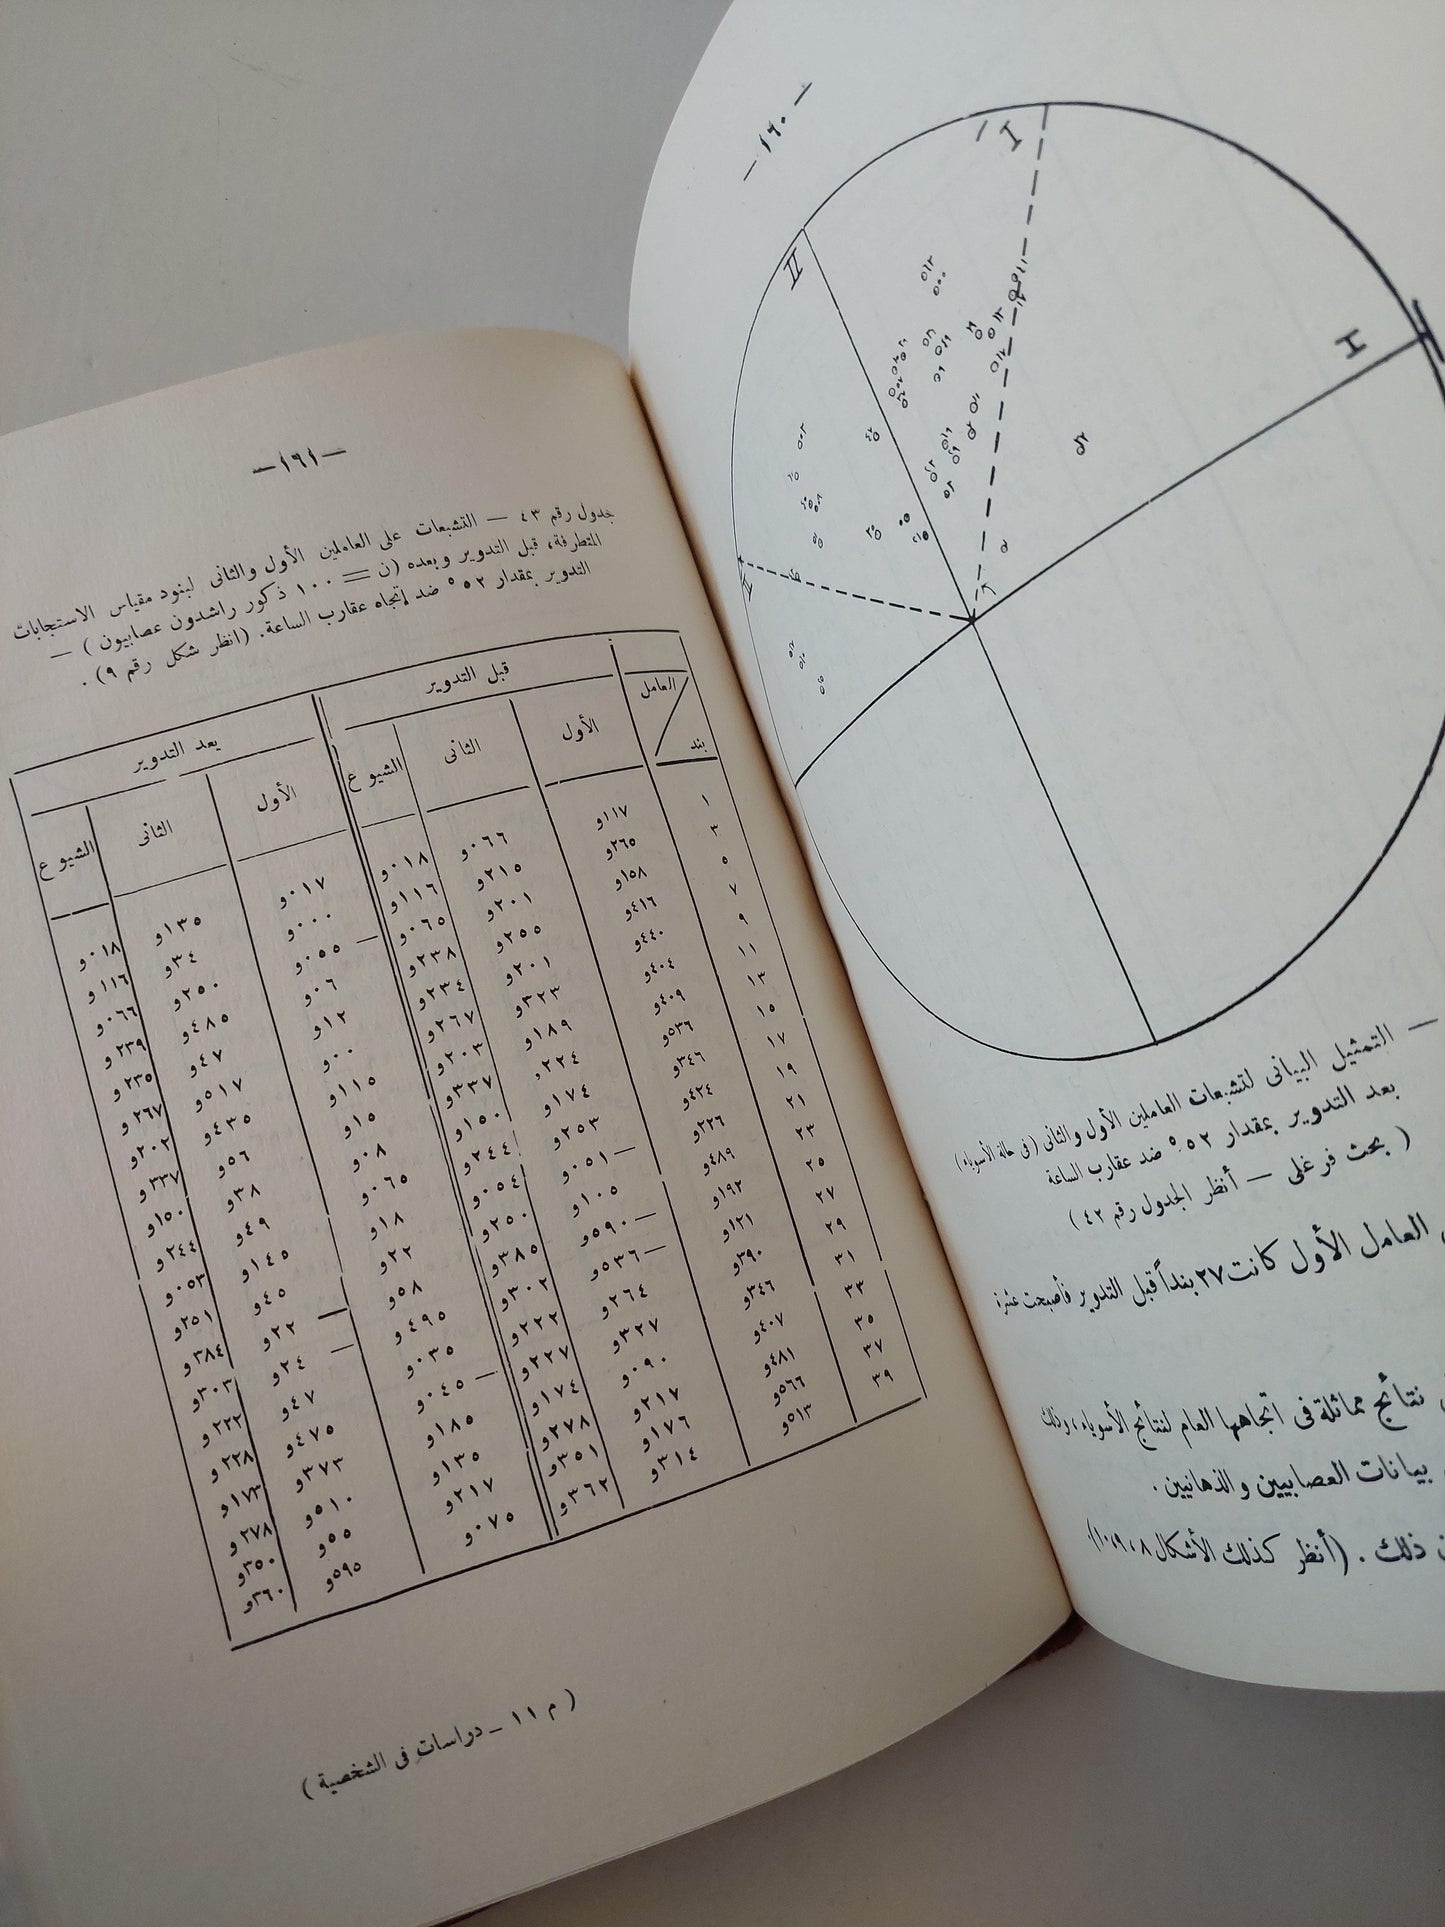 — ١٦٠ —
I
II
H
II
— التمثيل البيانى لتشبعات العاملين الأول والثانى ( فى حالة الأسوياء )
بعد التدوير بمقدار ٥٢° ضد عقارب الساعة
( بحث فرغلى — أنظر الجدول رقم ٤٢ )
العامل الأول كانت ٢٧ بنداً قبل التدوير فأصبحت عشرة
نتائج مماثلة فى اتجاهها العام لنتائج الأسوياء ، وذلك
بيانات العصابيين والذهانيين .
ذلك . ( أنظر كذلك الأشكال ٨ ، ٩ ، ١٠ ) .
— ١٦١ —
جدول رقم ٤٣ — التشبعات على العاملين الأول والثانى لبنود مقياس الاستجابات
المتطرفة ، قبل التدوير وبعده ( ن = ١٠٠ ذكور راشدون عصابيون ) —
التدوير بمقدار ٥٢° ضد إتجاه عقارب الساعة . ( انظر شكل رقم ٩ ) .
العامل قبل التدوير بعد التدوير
بند الأول الثانى الشيوع الأول الثانى الشيوع
١ ١١٧و ٠٦٦و ٠١٨و ٠١٧و ١٣٥و ٠١٨و
٣ ٢٦٥و ٢١٥و ١١٦و ٠٠٠و ٣٤و ١١٦و
٥ ١٥٨و ٢٠١و ٠٦٥و — ٠٥٥و ٢٥٠و ٠٦٦و
٧ ٤١٦و ٢٥٥و ٢٣٨و ٠٦و ٤٨٥و ٢٣٩و
٩ ٤٤٠و ٢٠١و ٢٣٤و ١٢و ٤٧و ٢٣٥و
١١ ٤٠٤و ٣٢٣و ٢٦٧و ٠٠و ٥١٧و ٢٦٧و
١٣ ٤٠٩و ١٨٩و ٢٠٣و ١١٥و ٤٣٥و ٢٠٢و
١٥ ٥٣٦و ٢٢٤و ٣٣٧و ١٥و ٥٦و ٣٣٧و
١٧ ٣٤٦و ١٧٤و ١٥٠و ٠٨و ٣٨و ١٥٠و
١٩ ٤٢٤و ٢٥٣و ٢٤٤و ٠٦٥و ٤٩و ٢٤٤و
٢١ ٢٢٦و — ٠٥١و ٠٥٤و ١٨و ١٤٥و ٠٥٣و
٢٣ ٤٨٩و ١٠٥و ٢٥٠و ٢٢و ٤٥و ٢٥١و
٢٥ ١٩٢و — ٥٩٠و ٣٨٥و ٥٨و — ٢٢و ٣٨٤و
٢٧ ١٢١و — ٥٣٦و ٣٠٢و ٤٩٥و — ٢٤و ٣٠٣و
٢٩ ٣٩٠و ٢٦٤و ٢٢٢و ٠٣٥و ٤٧و ٢٢٢و
٣١ ٣٤٦و ٣٢٧و ٢٢٧و — ٠٤٥و ٤٧٥و ٢٢٨و
٣٣ ٤٠٧و ٠٩٠و ١٧٤و ١٨٥و ٣٧٣و ١٧٣و
٣٥ ٤٨١و ٢١٧و ٢٧٨و ١٣٥و ٥١٠و ٢٧٨و
٣٧ ٥٦٦و ١٧٦و ٣٥١و ٢١٧و ٥٥و ٣٥٠و
٣٩ ٥١٣و ٣١٤و ٣٦٢و ٠٧٥و ٥٩٥و ٣٦٠و
( م ١١ — دراسات فى الشخصية )